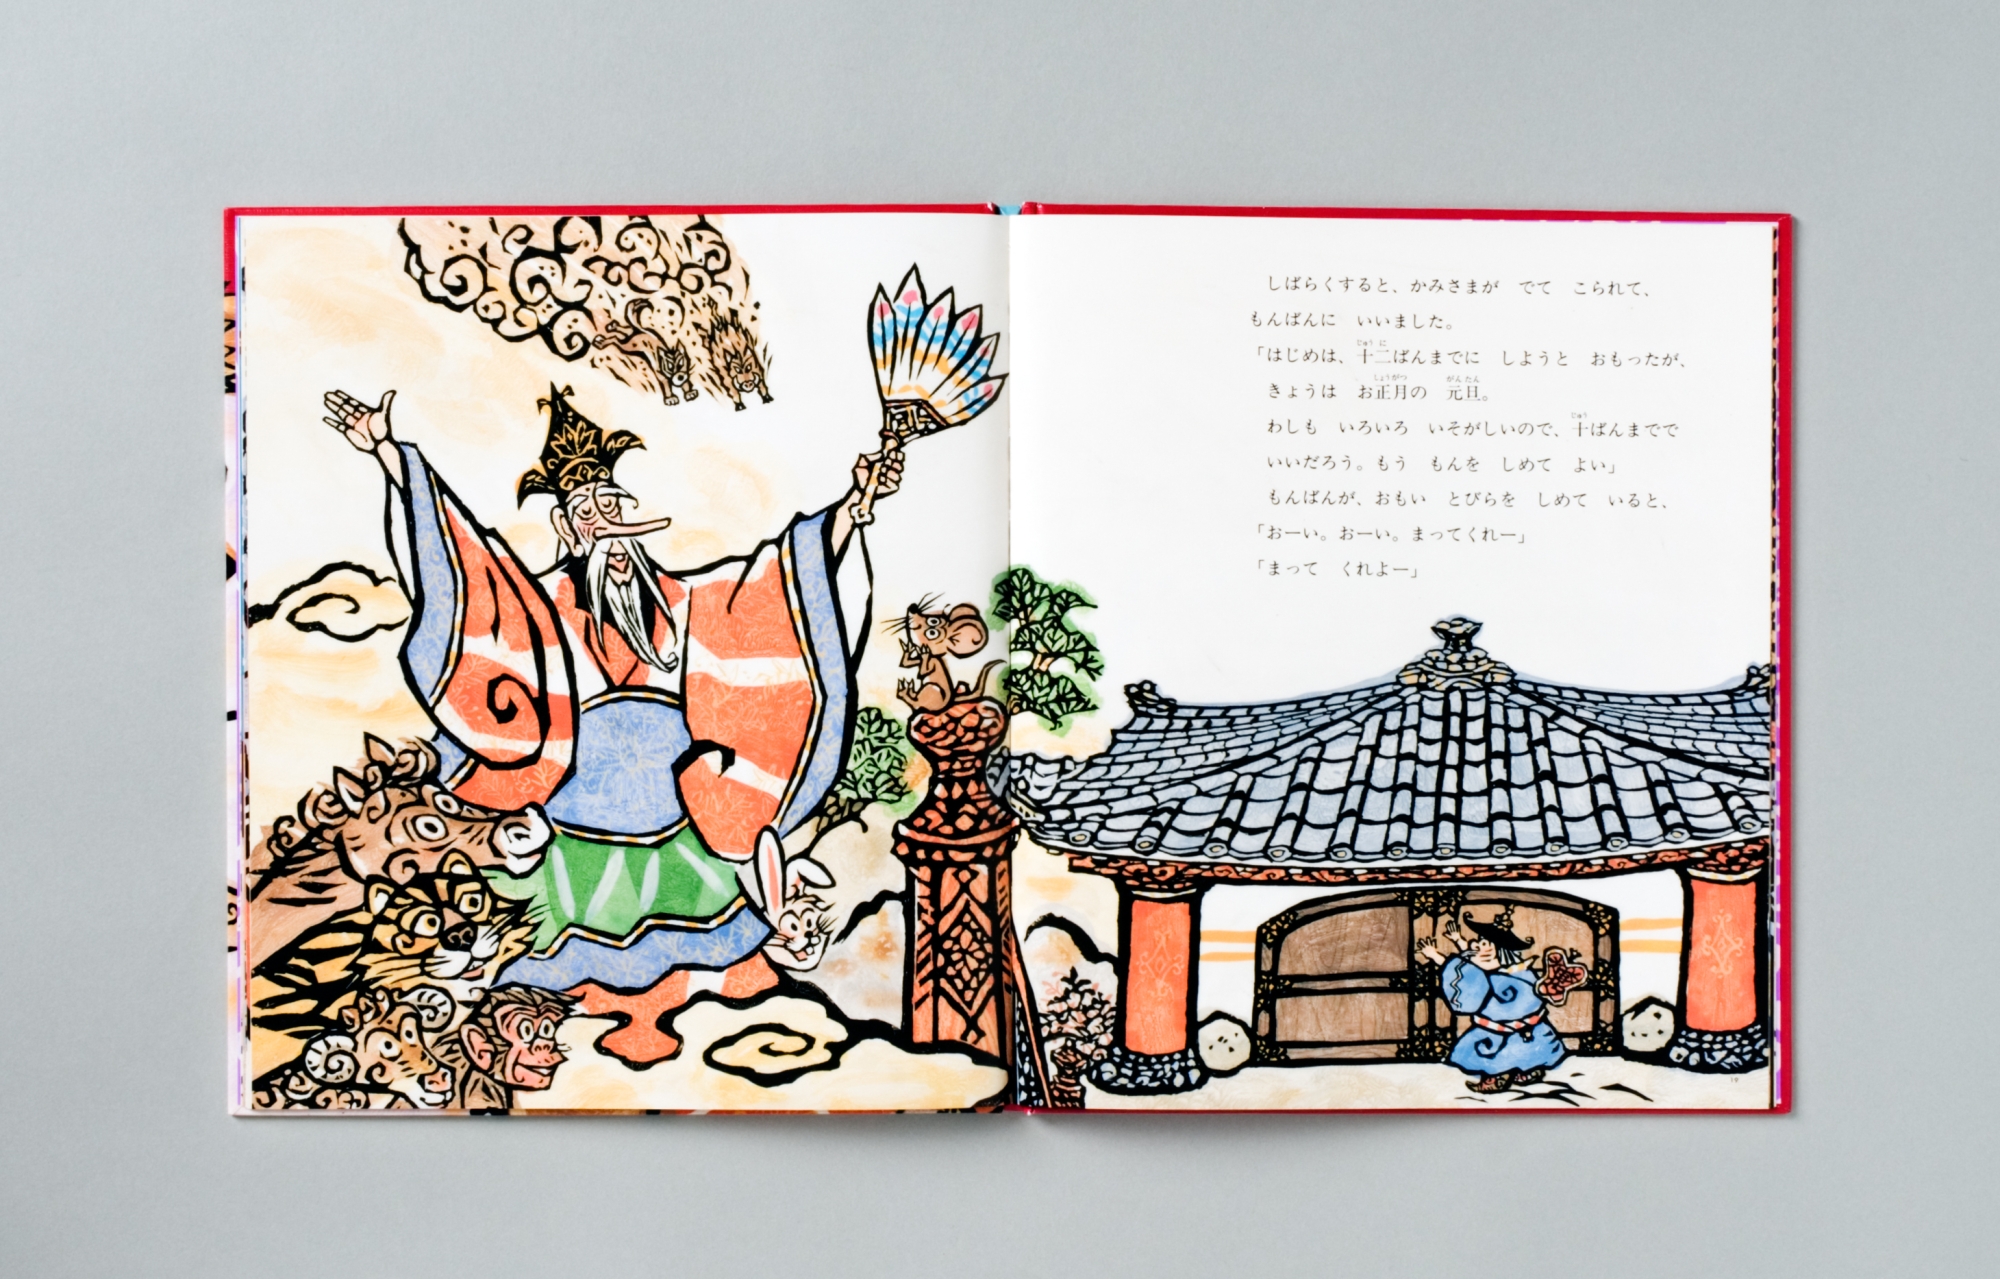 しばらくすると、かみさまが　でて　こられて、
もんばんに　いいました。
「はじめは、十二ばんまでに　しようと　おもったが、
きょうは　お正月の　元旦。
わしも　いろいろ　いそがしいので、十ばんまでで
いいだろう。もう　もんを　しめて　よい」
もんばんが、おもい　とびらを　しめて　いると、
「おーい。おーい。まってくれー」
「まって　くれよー」
19